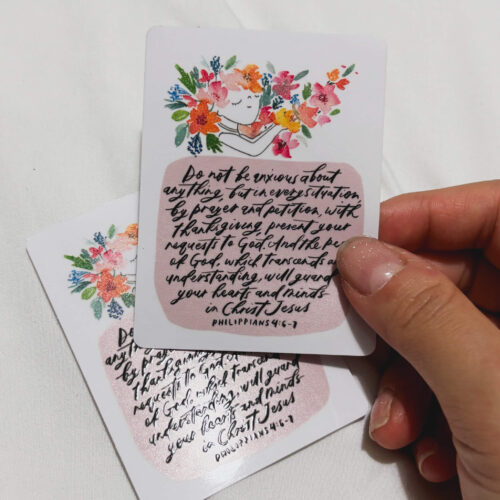 Do not be anxious about
anything, but in every situation
by prayer and petition, with
thanksgiving, present your
requests to God. And the
of God, which transcends
understanding, will guard
your hearts and minds
in Christ Jesus
PHILIPPIANS 4:6-7
Do not
anything
by prayer
thanksgiving
requests to
of God, which transcends
understanding, will
your hearts and minds
in Christ Jesus
PHILIPPIANS 4:6-7